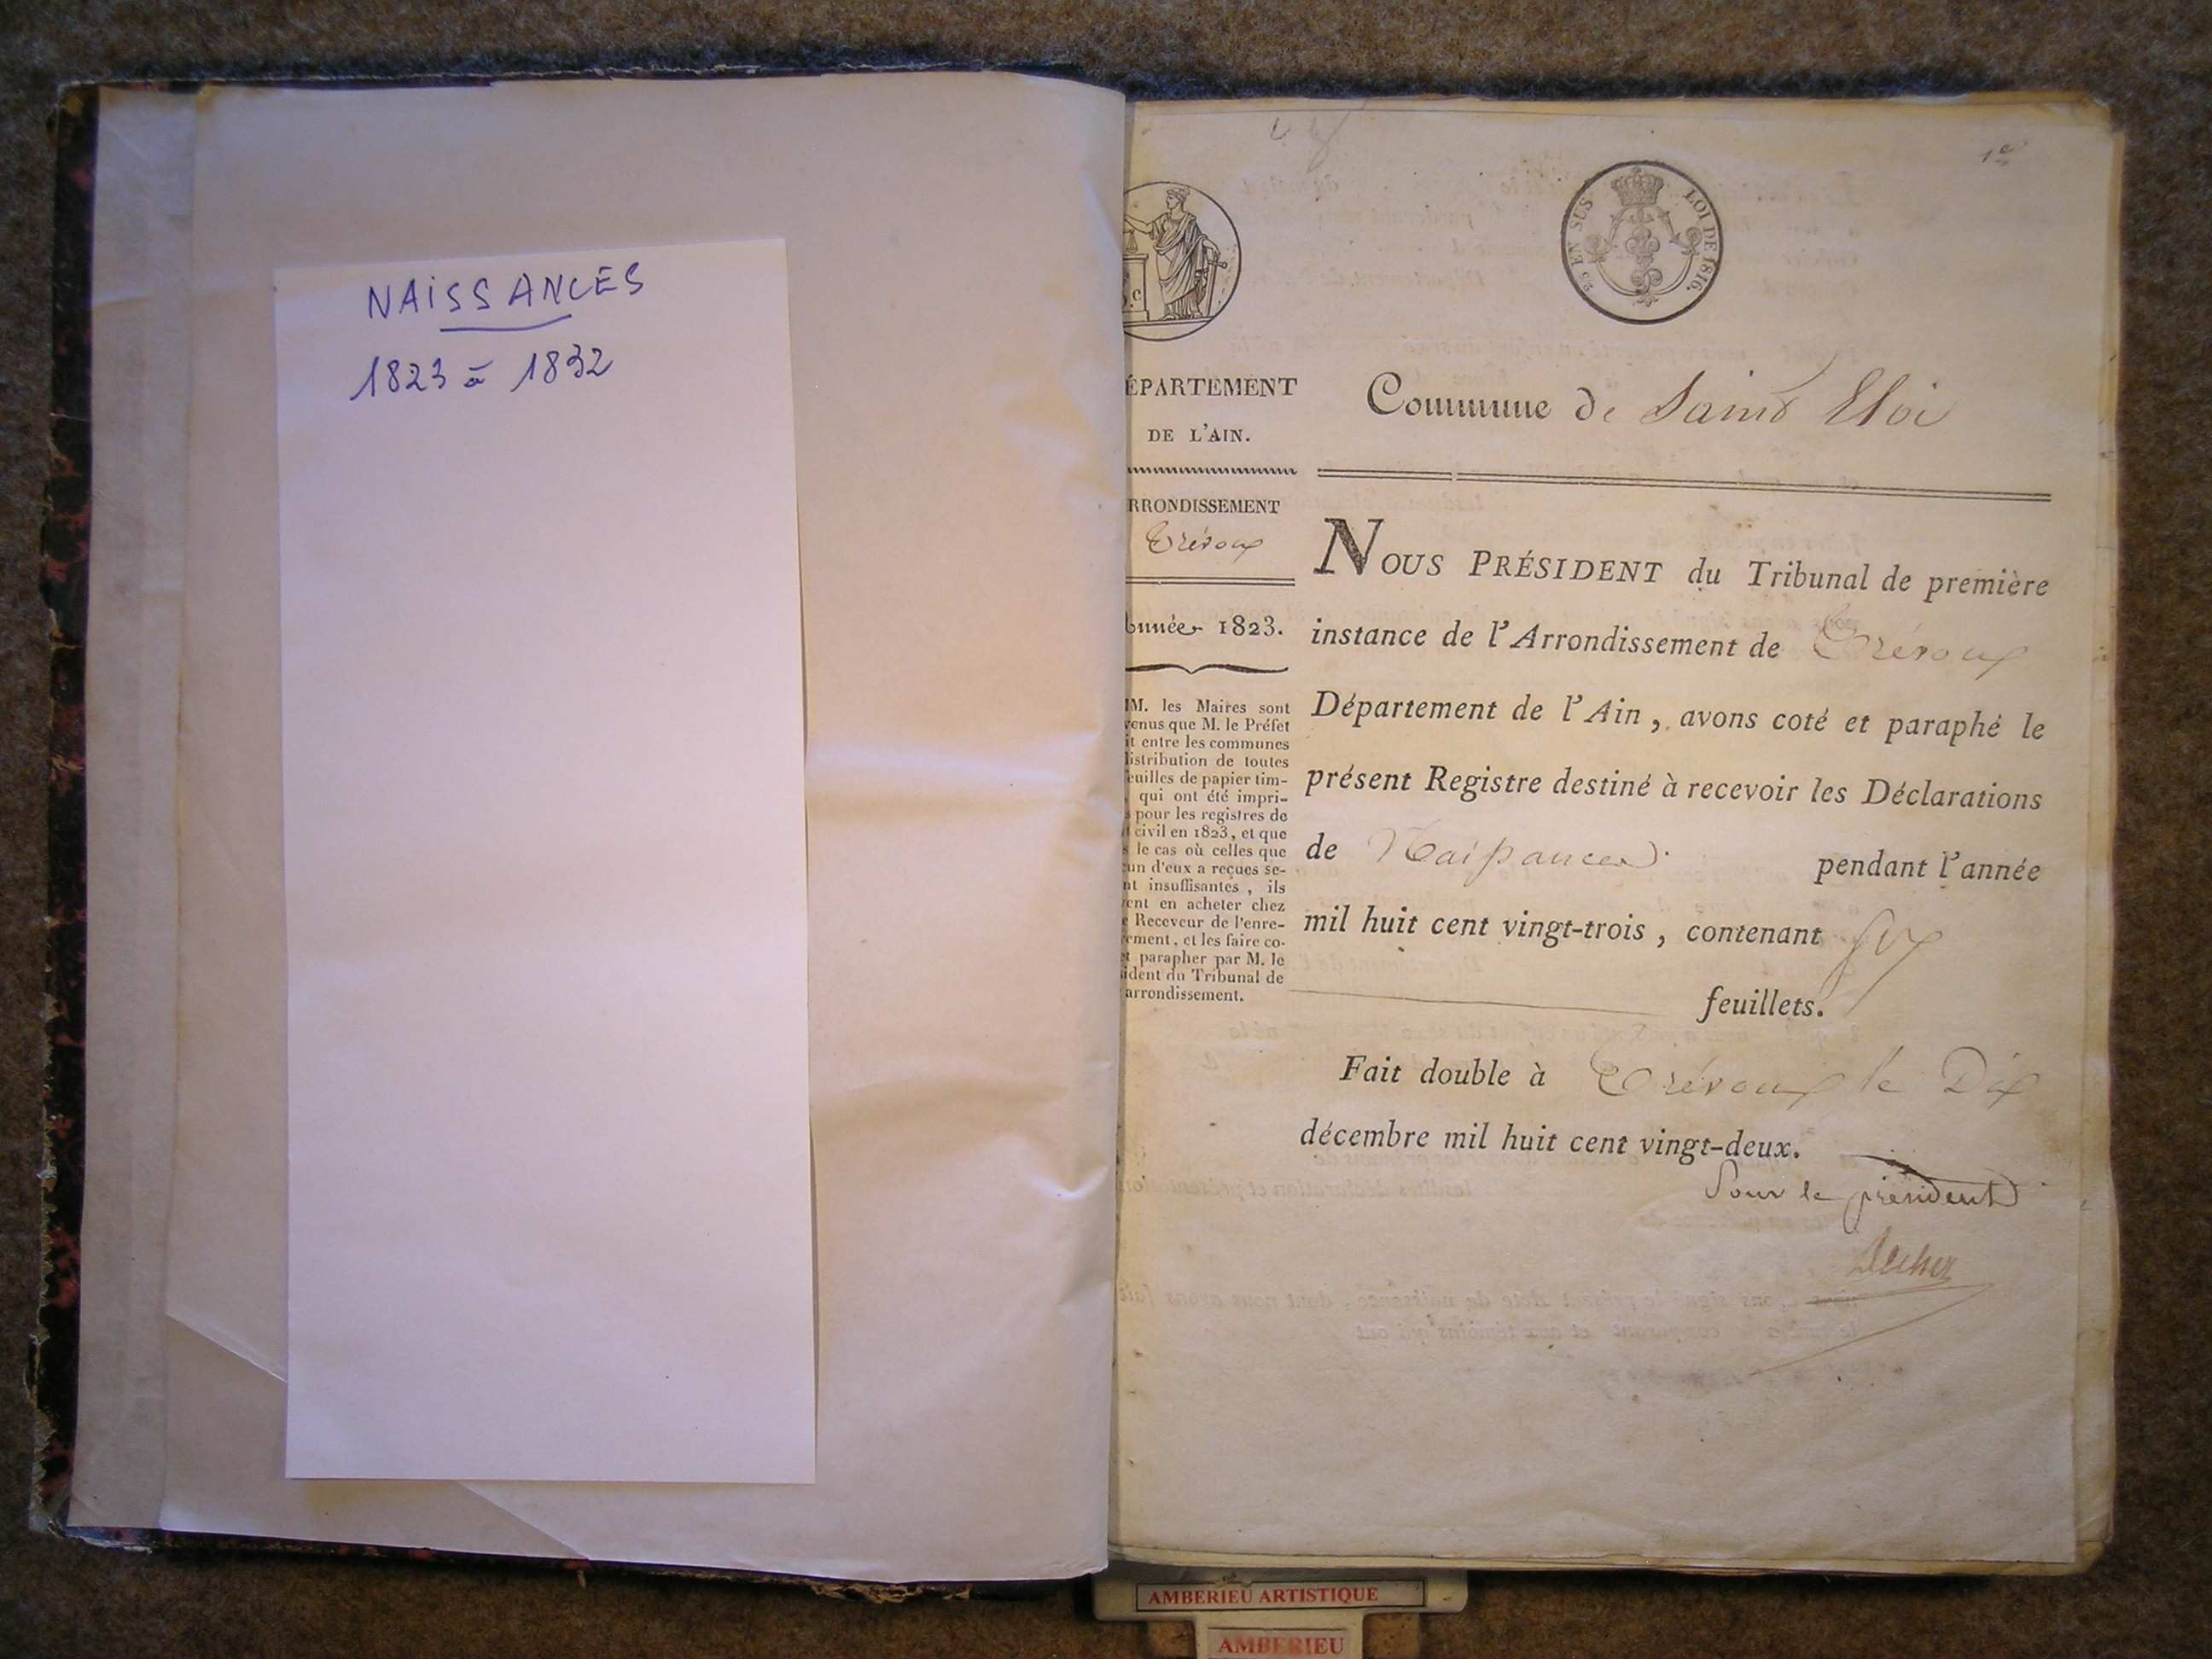 NAISSANCES
1823 à 1832
1e
2.5 EN SUS LOI DE 1816.
ÉPARTEMENT
DE L'AIN.
RRONDISSEMENT
Trévoux
Année 1823.
M. les Maires sont
enus que M. le Préfet
it entre les communes
istribution de toutes
euilles de papier tim-
, qui ont été impri-
s pour les registres de
t civil en 1823, et que
s le cas où celles que
un d'eux a reçues se-
nt insuffisantes, ils
ent en acheter chez
e Receveur de l'enre-
ement, et les faire co-
et parapher par M. le
ident du Tribunal de
arrondissement.
Commune de Saint Eloi
NOUS PRÉSIDENT du Tribunal de première
instance de l'Arrondissement de Trévoux
Département de l'Ain, avons coté et paraphé le
présent Registre destiné à recevoir les Déclarations
de Naissances pendant l'année
mil huit cent vingt-trois, contenant six
feuillets.
Fait double à Trévoux le Dix
décembre mil huit cent vingt-deux.
Pour le président
AMBERIEU ARTISTIQUE
AMBERIEU